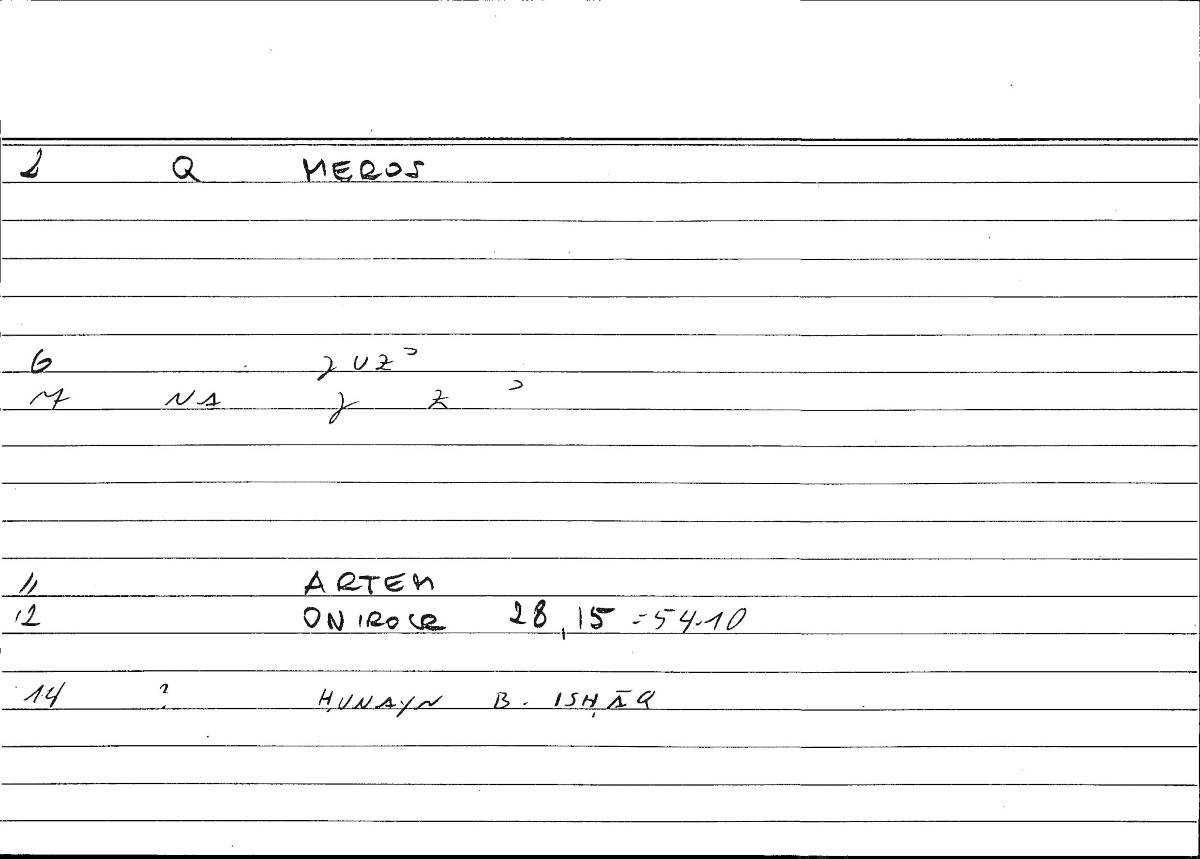 2 Q MEROS
6 ǧUZʾ
7 NA ǧ Z ʾ
11 ARTEM
12 ONIROCR 28,15 = 54.10
14 ? ḤUNAYN B. ISḤĀQ